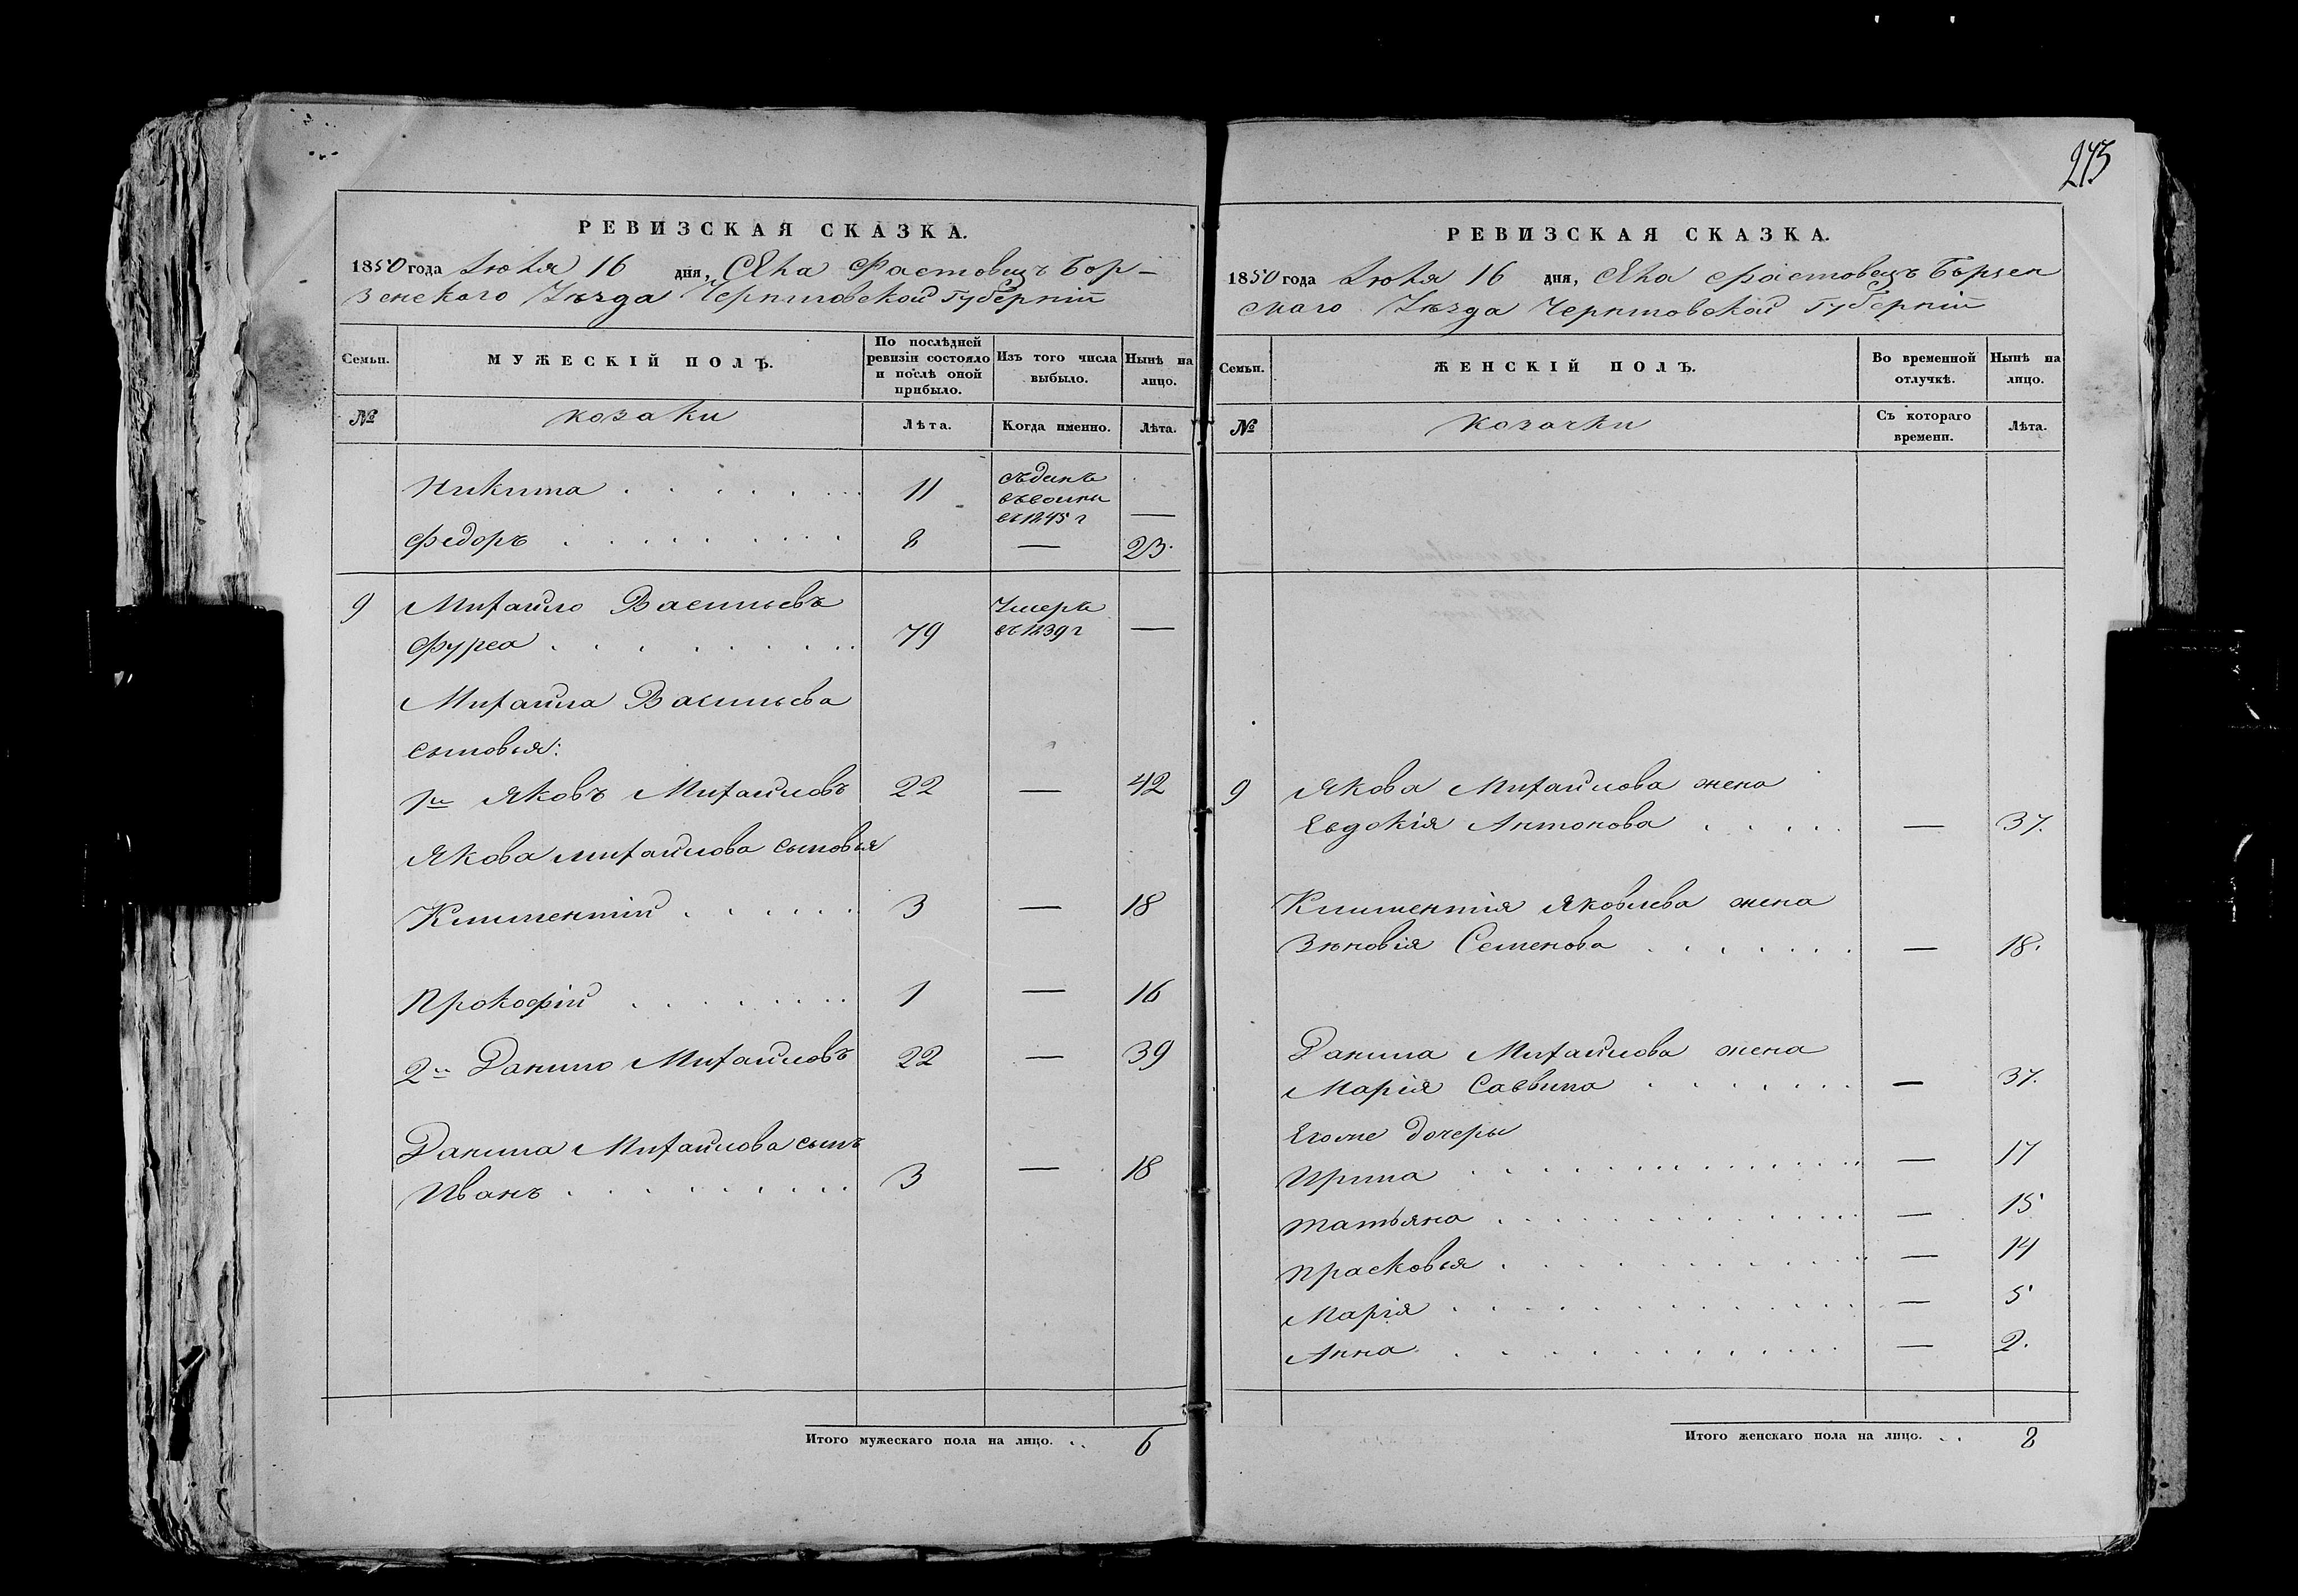 273
РЕВИЗСКАЯ СКАЗКА.
1850 года Июля 16 дня, Села Фастовецъ Бор-
зенскаго Уѣзда Черниговской Губерніи
Семьи.
МУЖЕСКІЙ ПОЛЪ.
По послѣдней
ревизіи состояло
и послѣ оной
прибыло.
Изъ того числа
выбыло.
Нынѣ на
лицо.
№
козаки
Лѣта.
Когда именно.
Лѣта.
Никита 11
въ 1845 г —
Федоръ 8 — 23.
9 Михайло Васильевъ Умеръ
Фурса 79 въ 1839 г —
Михайла Васильева
сыновья:
1й Яковъ Михайловъ 22 — 42
Якова Михайлова сыновья
Климентій 3 — 18
Прокофій 1 — 16
2й Данило Михайловъ 22 — 39
Данила Михайлова сынъ
Иванъ 3 — 18
Итого мужескаго пола на лицо. 6
РЕВИЗСКАЯ СКАЗКА.
1850 года Июля 16 дня, Села Фастовецъ Борзен
скаго Уѣзда Черниговской Губерніи
Семьи.
ЖЕНСКІЙ ПОЛЪ.
Во временной
отлучкѣ.
Нынѣ на
лицо.
№
козачки
Съ котораго
времени.
Лѣта.
9 Якова Михайлова жена
Евдокія Антонова — 37.
Климентія Яковлева жена
Зѣновія Семенова — 18.
Данила Михайлова жена
Марія Саввина — 37.
Егоже дочеры
Ирина — 17
Татьяна — 15
Прасковья — 14
Марія — 5
Анна — 2.
Итого женскаго пола на лицо. 8